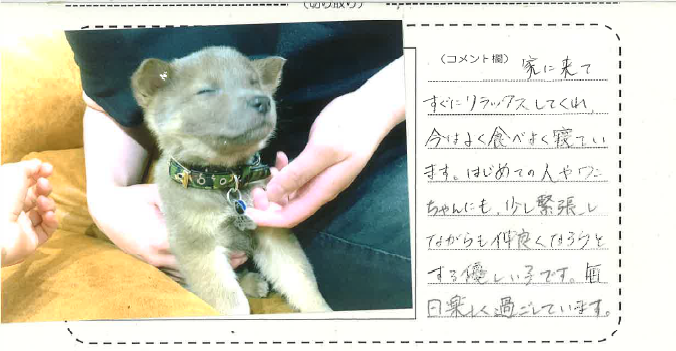 (切り取り)
(コメント欄) 家に来て
すぐにリラックスしてくれ、
今はよく食べよく寝てい
ます。はじめての人やワン
ちゃんにも、少し緊張し
ながらも仲良くなろうと
する優しい子です。毎
日楽しく過ごしています。